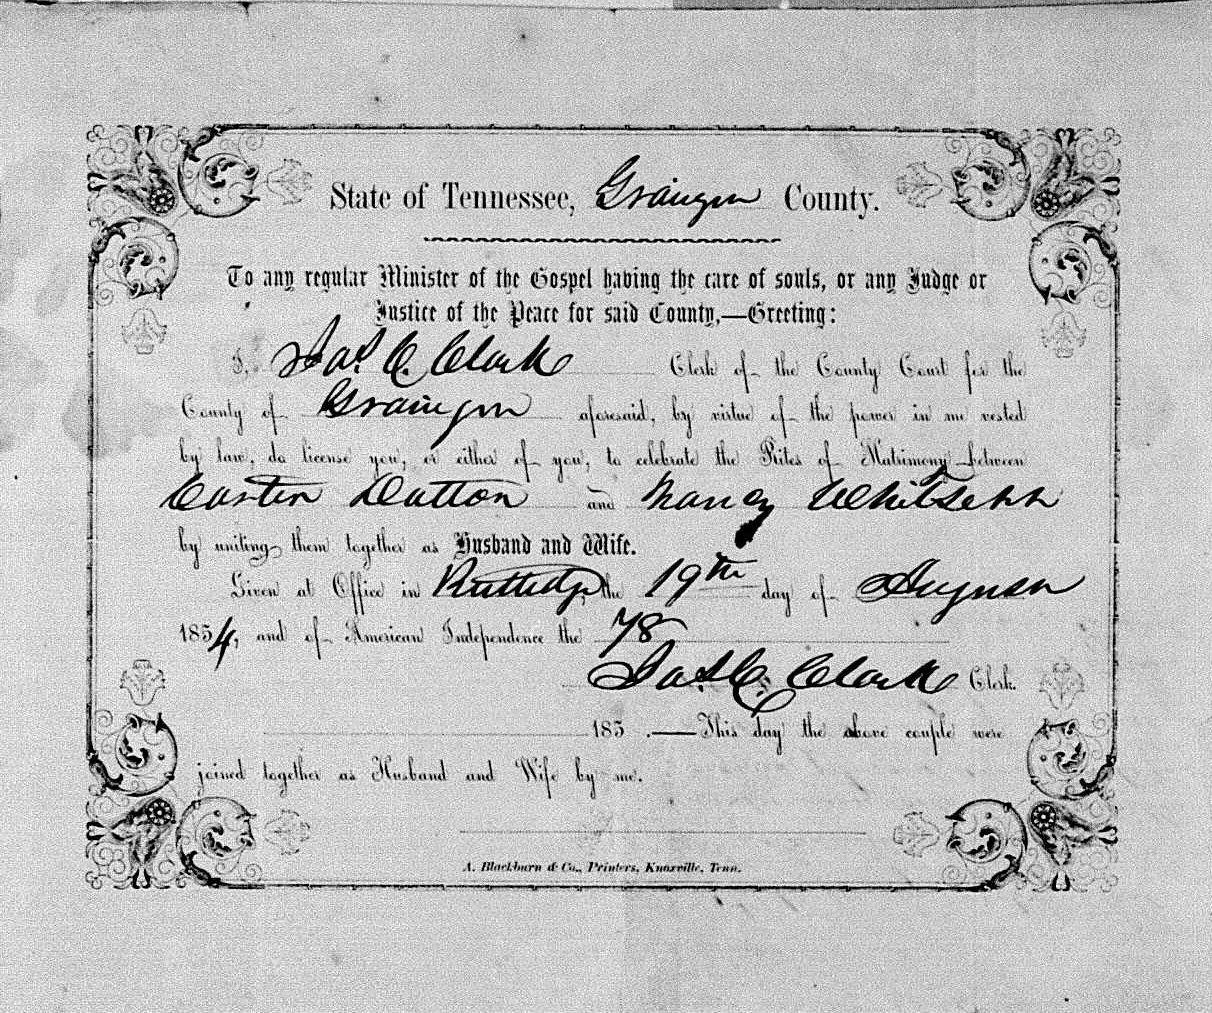 State of Tennessee, Grainger County.
To any regular Minister of the Gospel having the care of souls, or any Judge or
Justice of the Peace for said County,—Greeting:
I, Jas. C. Clark Clerk of the County Court for the
County of Grainger aforesaid, by virtue of the power in me vested
by law, do license you, or either of you, to celebrate the Rites of Matrimony between
Easten Datton and Nancy
by uniting them together as Husband and Wife.
Given at Office in Rutledge, the 19th day of August
1854, and of American Independence the 78
Jas. C. Clark Clerk.
185 .—This day the above couple were
joined together as Husband and Wife by me.
A. Blackburn & Co., Printers, Knoxville, Tenn.